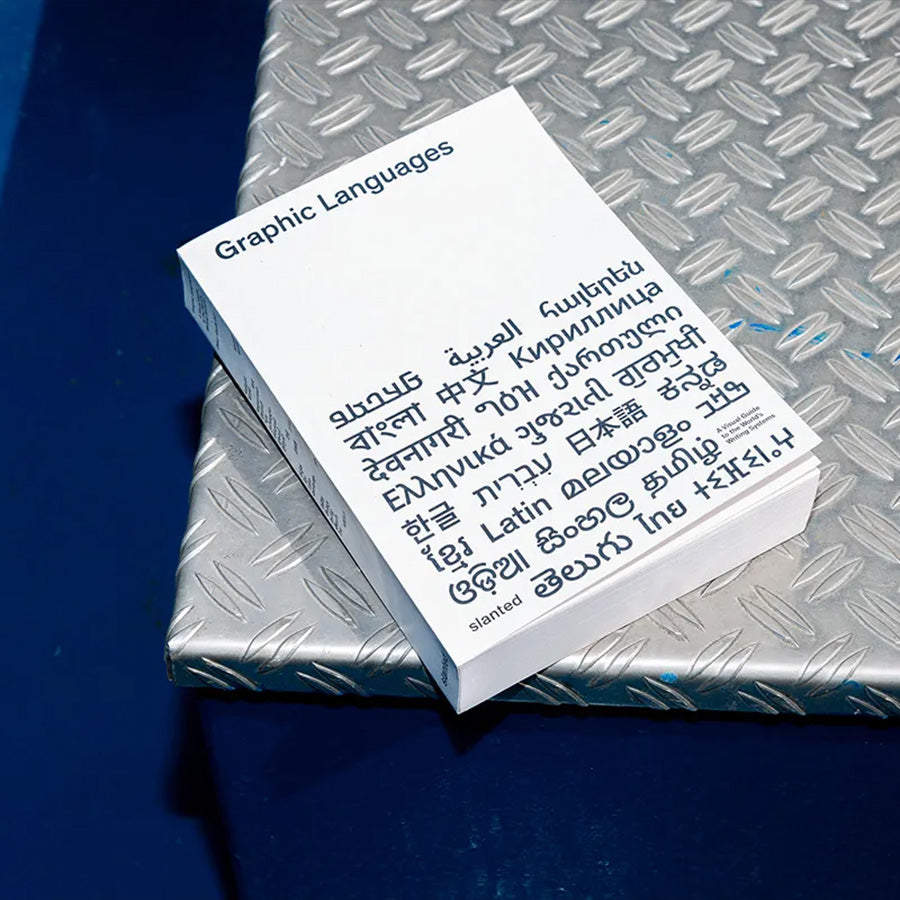 Graphic Languages
العربية հայերեն
বাংলা 中文 Кириллица
देवनागरी ქართული
Ελληνικά ગુજરાતી ਗੁਰਮੁਖੀ
한글 עִבְרִית 日本語 ಕನ್ನಡ
ខ្មែរ Latin മലയാളം
ଓଡ଼ିଆ සිංහල தமிழ்
తెలుగు ไทย ⵜⵉⴼⵉⵏⴰⵖ
A Visual Guide
to the World's
Writing Systems
slanted
slanted